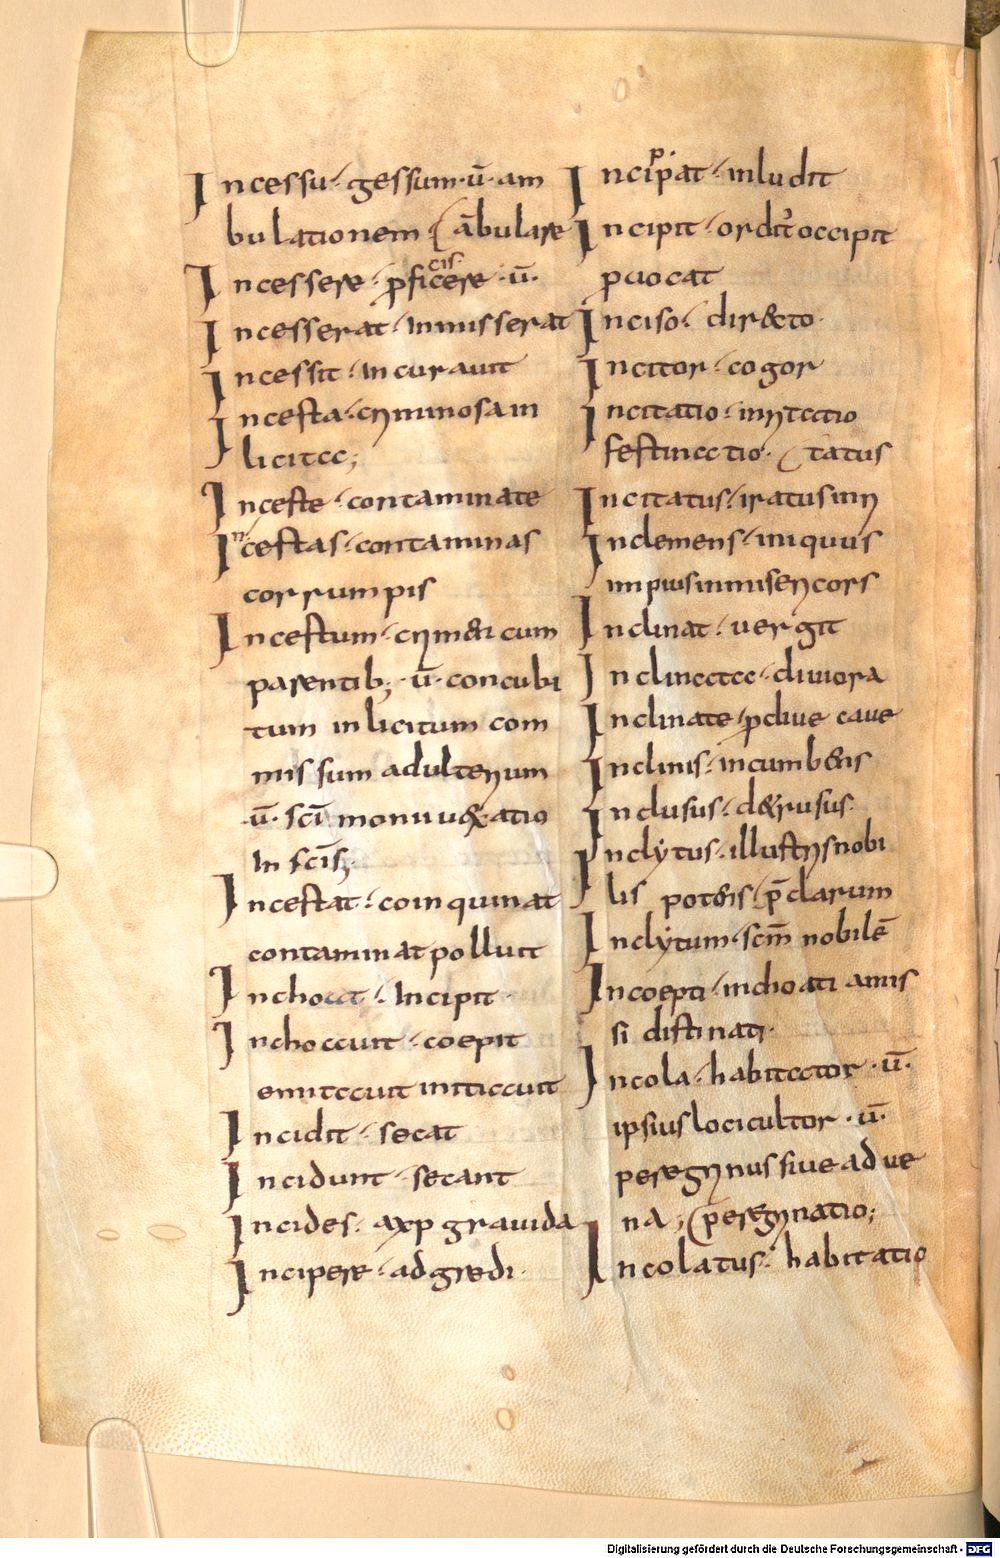 Incessu· gessum· ū· am
bulationem (ābulare
Incessere· proficere ·ū·
cis·
Incesserat· Inmisserat
Incessit· Incurauit
Incesta· criminosa in
licita;
Inceste· contaminate
Incestas· contaminas
corrumpis
Incestum· crimen cum
parentib; ·ū· concubi
tum inlicitum com
missum adulterium
ū· sc̄i moniu uexatio
In sc̄is;
Incestat· coinquinat
contaminat polluit
Inchoat· Incipit·
Inchoauit· coepit
enitauit initiauit
Incidit· secat
Incidunt· secant
Incides· grauida
Incipere· adgredi·
p·
Incipat· inludit
Incipit· ordit̄ occipit
ꝓuocat
Inciso· dir&o·
Incitor· cogor
Incitatio· inritatio
festinatio· (tatus
Incitatus· iratus inri
Inclemens· iniquus
impius inmisericors
Inclinat· uergit
Inclinata· diuiora
Inclinate· ꝓcliue caue
Inclinis· incumbens
Inclusus· d&rusus·
Inclytus· illustris nobi
lis potens· p̄clarum
Inclytum· scm̄ nobilē
Incoepti· inchoati amis
si distinati·
Incola· habitator ·ū·
ipsius loci cultor ·ū·
peregrinus siue adue
na; (peregrinatio;
Incolatus· habitatio
Digitalisierung gefördert durch die Deutsche Forschungsgemeinschaft - DFG